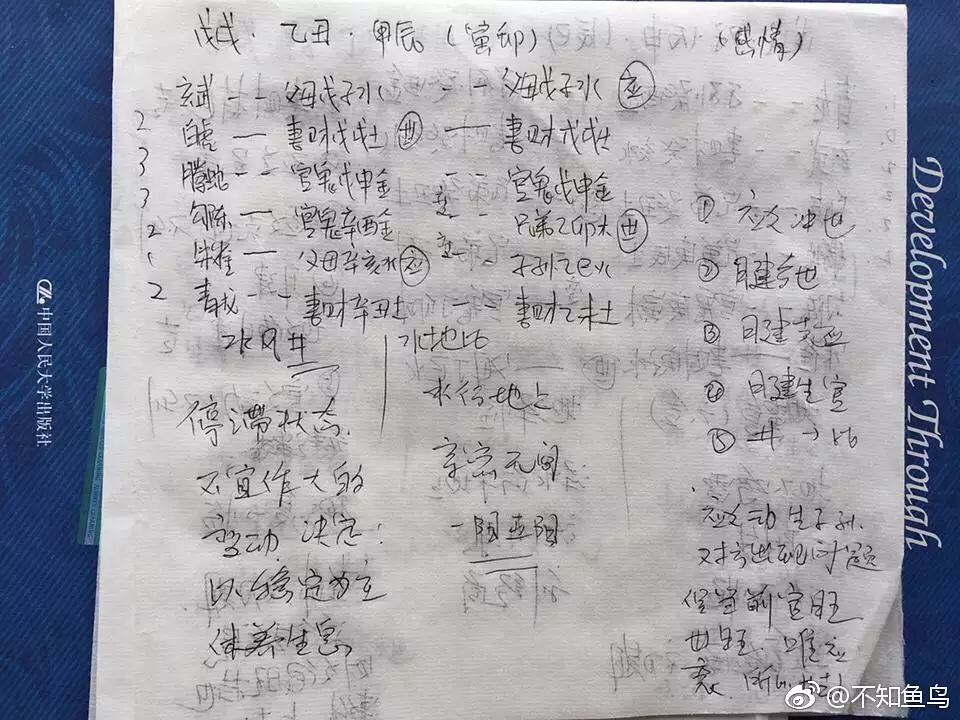 戊戌·乙丑·甲辰(寅卯) (感情)
玄武 -- 父母戊子水 -- 父母戊子水 应
2 白虎 — 妻财戊戌土 世 — 妻财戊戌土
3 腾蛇 -- 官鬼戊申金 -- 官鬼戊申金
3 勾陈 — 官鬼辛酉金 -- 兄弟乙卯木 世
2 朱雀 — 父母辛亥水 应 -- 子孙乙巳火
2 青龙 -- 妻财辛丑土 妻财乙未土
水风井
水地比
停滞状态
不宜作大的
变动 决定:
以稳定为主
休养生息
水行地上
亲密无间
一阳五阴
① 应爻冲世
② 日建合世
③ 日建克应
④ 日建生官
⑤ 井→比
应爻动生子孙.
对方出现问题
官旺
世旺. 唯应
衰.
Development Through
中国人民大学出版社
@不知鱼鸟